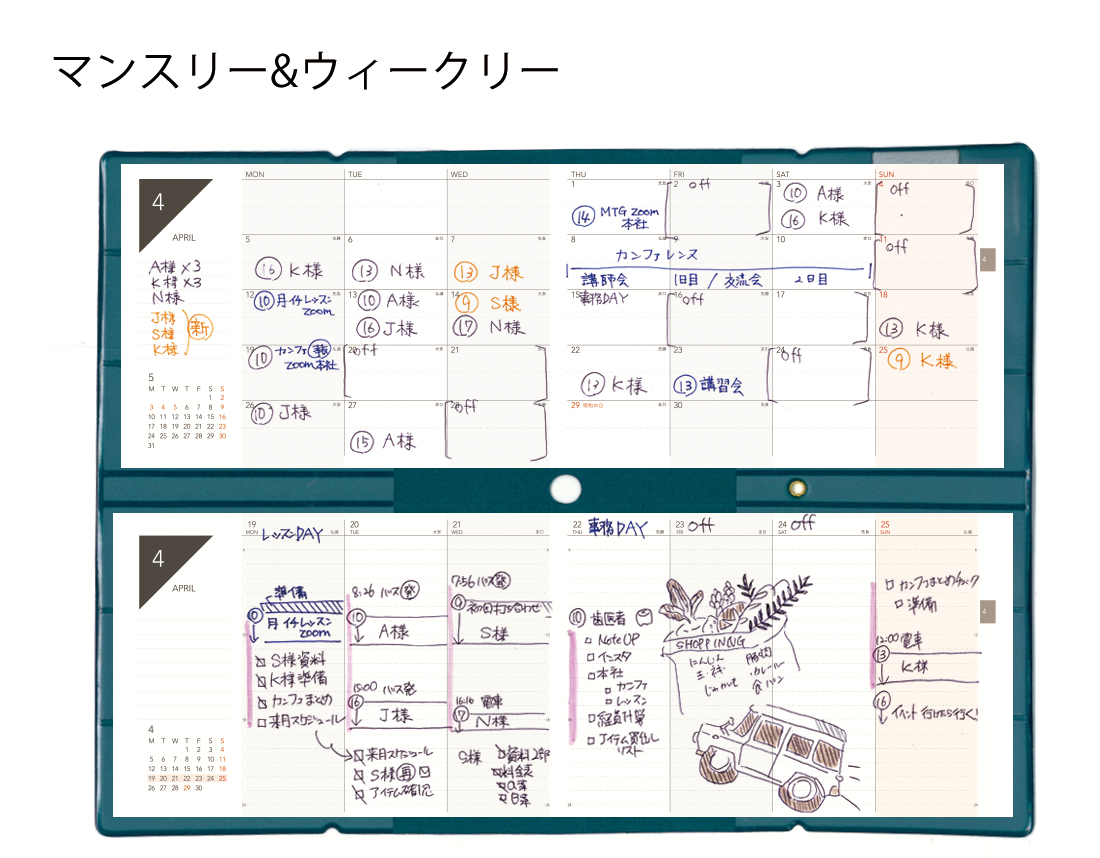 マンスリー&ウィークリー
4
APRIL
A様 ×3
K様 ×3
N様
J様
S様
K様
新
5
M T W T F S S
1 2
3 4 5 6 7 8 9
10 11 12 13 14 15 16
17 18 19 20 21 22 23
24 25 26 27 28 29 30
31
MON TUE WED THU FRI SAT SUN
1
⑭ MTG zoom
本社
2 off
3
⑩ A様
⑯ K様
4 off
5
⑯ K様
6
⑬ N様
7
⑬ J様
8 9 10
カンファレンス
講師会 1日目 / 交流会 2日目
11 off
12
⑩ 月イチレッスン
zoom
13
⑩ A様
⑯ J様
14
⑨ S様
⑰ N様
15 事務DAY
16 off
17
18
⑬ K様
19
⑩ カンファ
zoom本社
20 off
21
22
⑬ K様
23
⑬ 講習会
24 off
25
⑨ K様
26
⑩ J様
27
⑮ A様
28 off
29 昭和の日
30
4
4
APRIL
4
M T W T F S S
1 2 3 4
5 6 7 8 9 10 11
12 13 14 15 16 17 18
19 20 21 22 23 24 25
26 27 28 29 30
19
MON
レッスンDAY
準備
⑩ 月イチレッスン
zoom
S様資料
K様準備
カンファまとめ
来月スケジュール
20
TUE
8:26 バス発
⑩
A様
15:00 バス発
⑯
J様
来月スケジュール
S様 再
アイテム確認
21
WED
7:56 バス発
⑨ 初回打ち合わせ
S様
16:16 電車
⑰ N様
S様 資料2部
料金表
A案
B案
22
THU
事務DAY
⑩ 歯医者
Note UP
インスタ
本社
カンファ
レッスン
経費計算
アイテム貸出し
リスト
23
FRI
off
24
SAT
off
SHOPPING
にんじん
玉ネギ
じゃがいも
豚肉
カレールー
食パン
25
SUN
カンファまとめチェック
準備
12:00 電車
⑬
K様
⑯
イベント 行けたら行く!
4